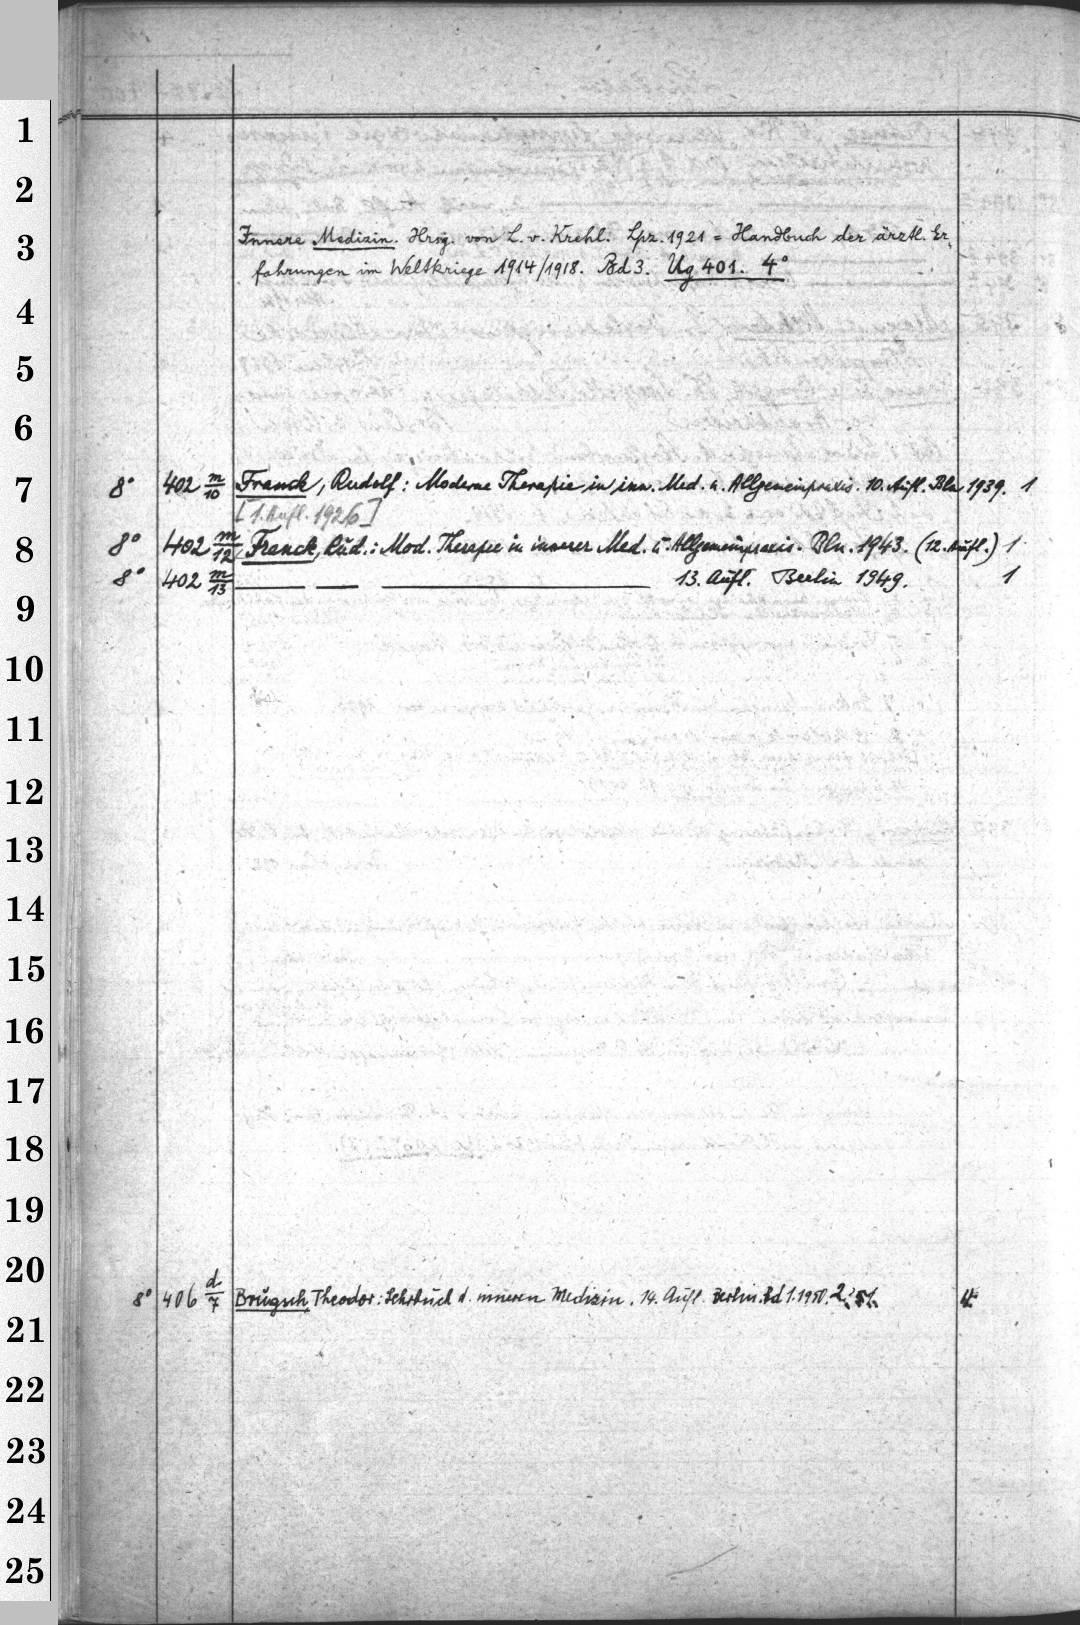 1
2
3
Innere Medizin. Hrsg. von L. v. Krehl. Lpz. 1921 = Handbuch der ärztl. Er-
fahrungen im Weltkriege 1914/1918. Bd 3. Ug 401. 4°
4
5
6
7
8° 402 m/10 Franck, Rudolf: Moderne Therapie in inn. Med. u. Allgemeinpraxis. 10. Aufl. Bln 1939. 1
[1. Aufl. 1926]
8
8° 402 m/12 Franck, Rud.: Mod. Therapie in innerer Med. u. Allgemeinpraxis. Bln. 1943. (12. Aufl.) 1
8° 402 m/13 — — — 13. Aufl. Berlin 1949. 1
9
10
11
12
13
14
15
16
17
18
19
20
8° 406 d/7 Brugsch, Theodor: Lehrbuch d. inneren Medizin. 14. Aufl. Berlin. Bd 1. 1950. 2. 51. 4
21
22
23
24
25